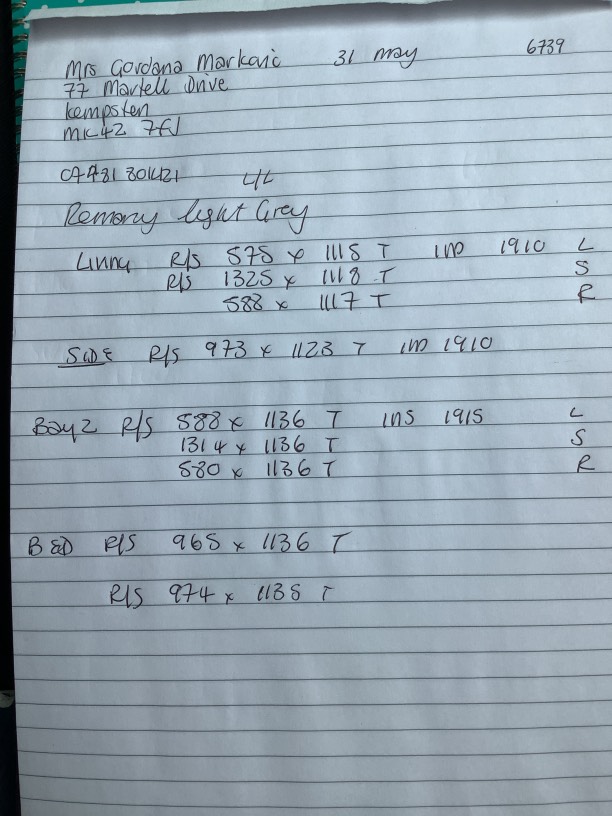 Mrs Gordana Markovic 31 may 6739
77 Martell Drive
Kempsten
MK42 7FJ
L/L
Remony light Grey
Living R/S 575 x 1118 T IND 1910 L
R/S 1325 x 1118 T S
588 x 1117 T R
SIDE R/S 973 x 1123 T IND 1910
Bay 2 R/S 588 x 1136 T INS 1915 L
1314 x 1136 T S
580 x 1136 T R
BED R/S 965 x 1136 T
R/S 974 x 1135 T